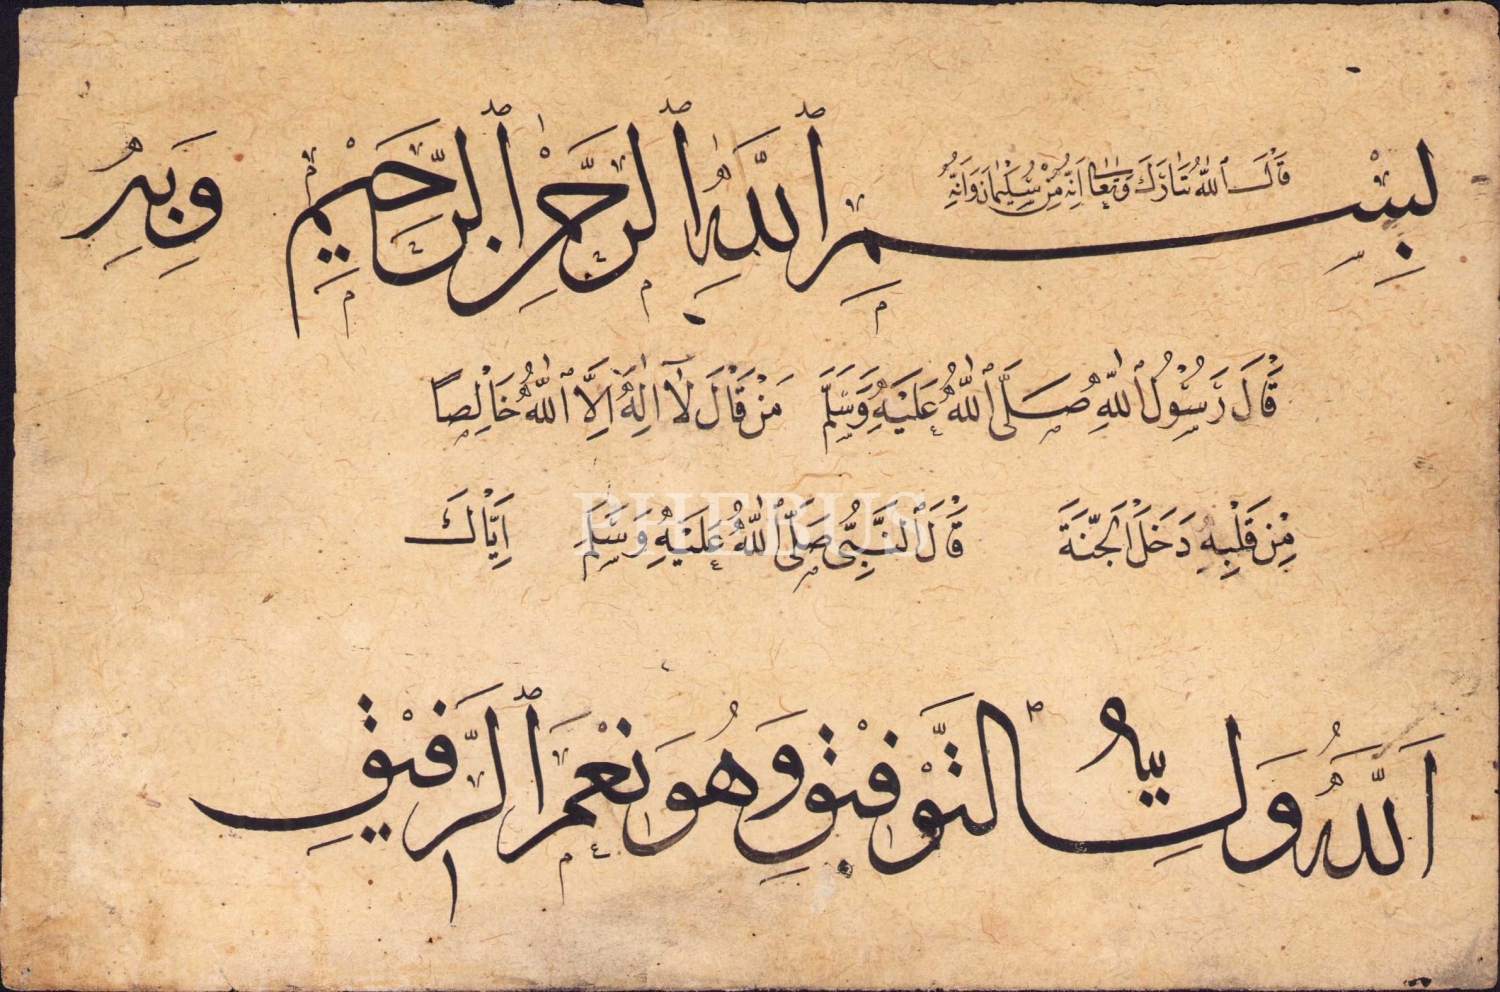 قَالَ اللّٰهُ تَبَارَكَ وَتَعَالٰى اِنَّهُ مِنْ سُلَيْمَانَ وَاِنَّهُ
بِسْمِ اللّٰهِ الرَّحْمٰنِ الرَّحِيْمِ وَبِهِ
قَالَ رَسُوْلُ اللّٰهِ صَلَّى اللّٰهُ عَلَيْهِ وَسَلَّمَ مَنْ قَالَ لَآ اِلٰهَ اِلَّا اللّٰهُ خَالِصًا
مِنْ قَلْبِهِ دَخَلَ الْجَنَّةَ قَالَ النَّبِىُّ صَلَّى اللّٰهُ عَلَيْهِ وَسَلَّمَ اِيَّاكَ
اَللّٰهُ وَلِىُّ التَّوْفِيْقِ وَهُوَ نِعْمَ الرَّفِيْقِ
PHEBUS